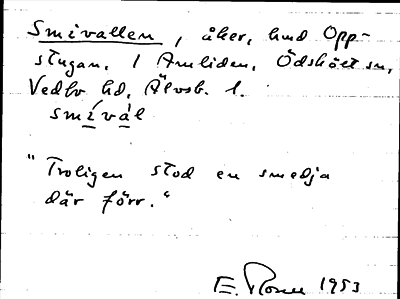 Smivallen, åker, hmd Opp-
stugan, 1 Amliden, Ödskölt sn,
Vedbo hd, Älvsb. l.
smival
"Troligen stod en smedja
där förr."
E. Rosen 1953